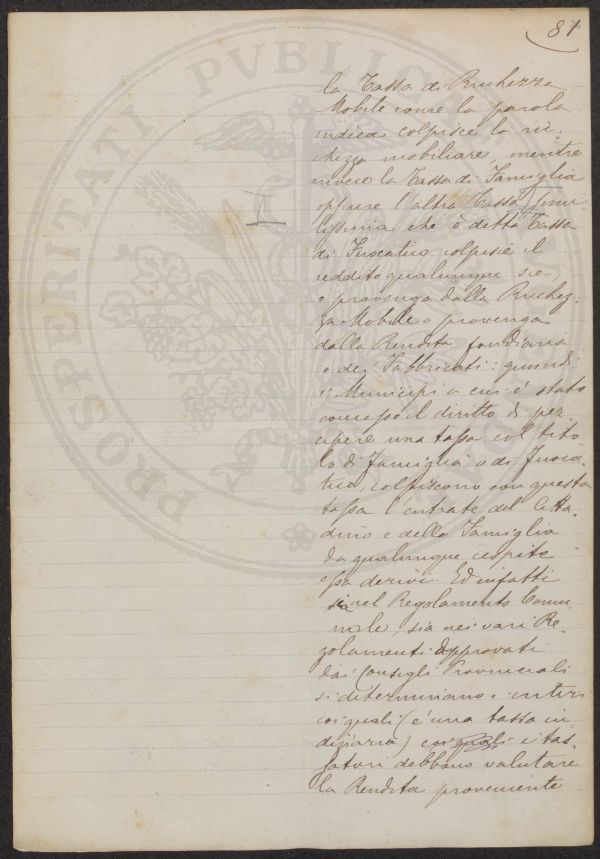 81
la Tassa di Ricchezza
Mobile come la parola
indica colpisce la ric-
chezza mobiliare, mentre
invece la Tassa di Famiglia
oppure l'altra Tassa simi-
lissima che è detta Tassa
di Fuocatico colpisce il
reddito qualunque sia,
o provenga dalla Ricchez-
za Mobile o provenga
dalla Rendita fondiaria
o dei Fabbricati: quindi
i Municipi a cui è stato
concesso il diritto di per-
cipere una tassa col tito-
lo di Famiglia o di Fuoca-
tico, colpiscono con questa
tassa l'entrate del Citta-
dino e della Famiglia
da qualunque cespite
essa derivi. Ed infatti
sia nel Regolamento Comu-
nale, sia nei vari Re-
golamenti approvati
dai Consigli Provinciali
si determinano i criteri
coi quali (è una tassa in-
diziaria) i tas-
satori debbono valutare
la Rendita proveniente
PROSPERITATI PUBLICAE